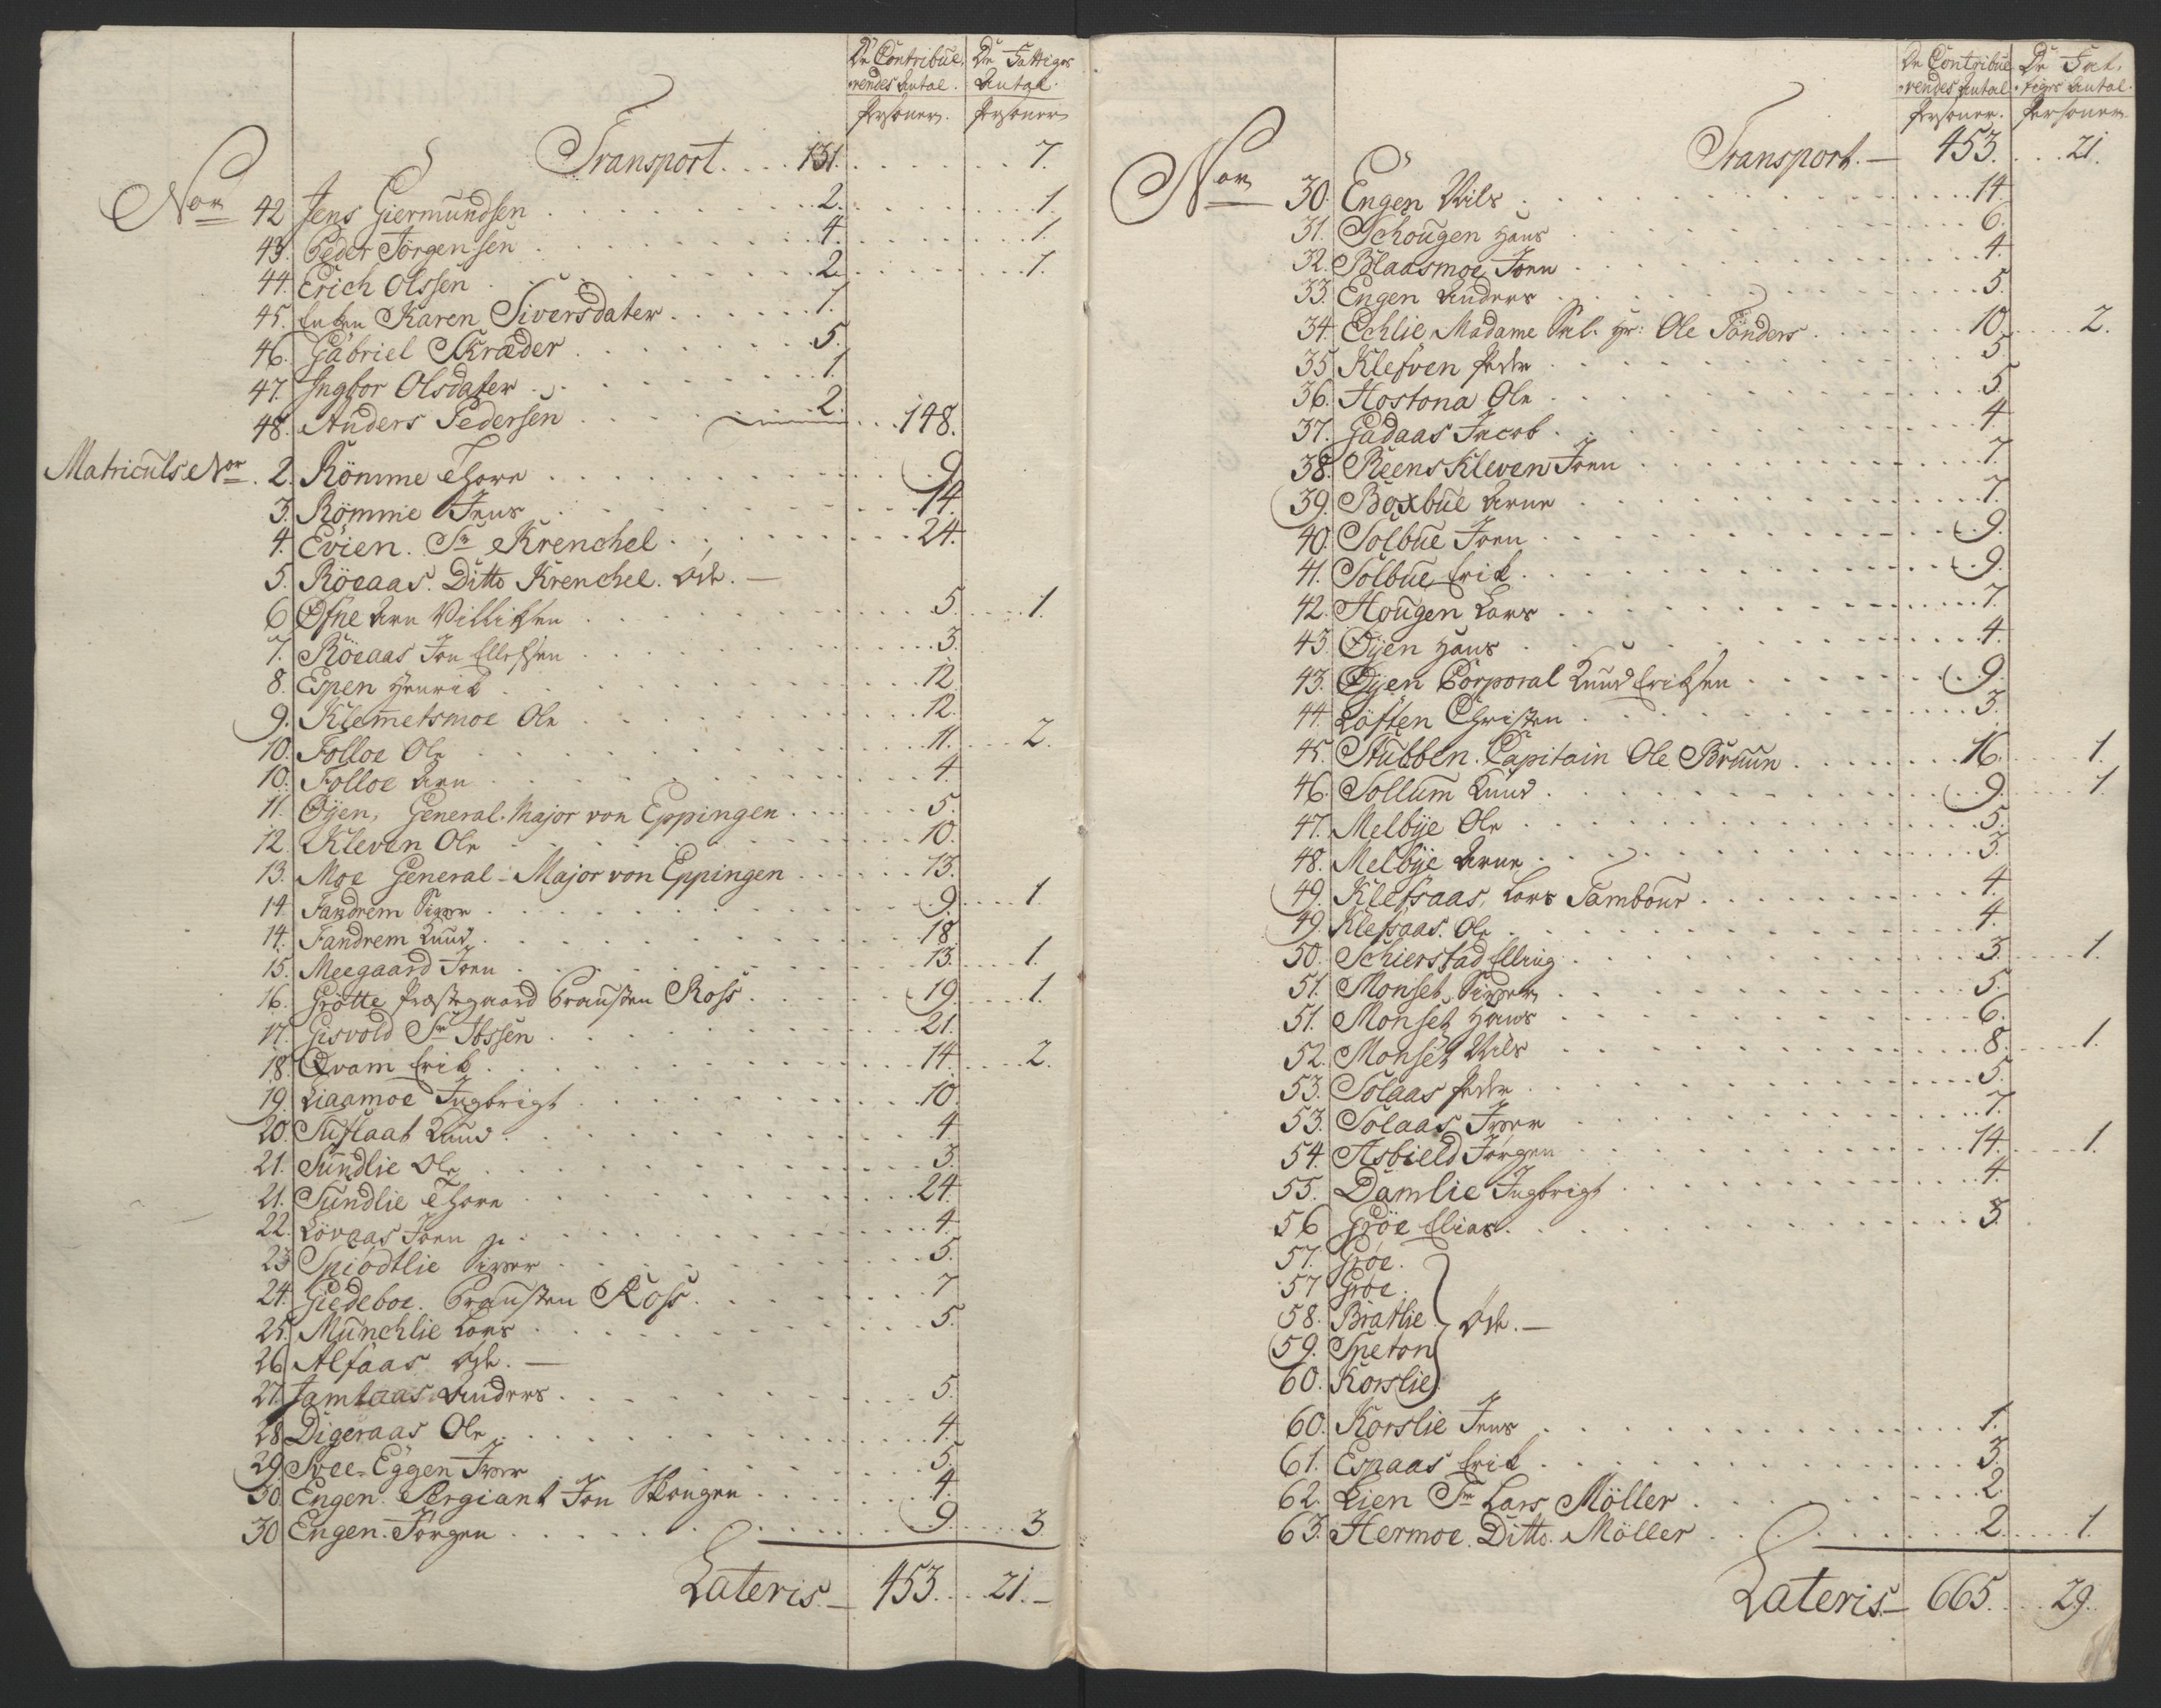 De Contribue,
De Fattiges
rendes Antal.
Antal.
Personer.
Personer
Transport. . . 131. . . 7.
Nor
42 Jens Giermundsen . . . 2. . . 1.
43. Peder Jörgensen . . . 4. . . 1.
44. Erich Olssen . . . 2. . . 1.
45. Enken Karen Siversdater . . . 1.
46. Gabriel Skræder . . . 5.
47. Ingbor Olsdater . . . 1.
48. Anders Pedersen . . . 2. . . 148.
Matriculs Nor. 2. Römme Thore . . . 9.
3. Römme Jens . . . 14.
4. Evien. Sr Krenchel . . . 24.
5. Röeaas. Ditto Krenchel. Öde. —
6 Øfne Arn Villiksen . . . 5. . . 1.
7. Röeaas Jon Ellefsen . . . 3.
8. Espen Henrik . . . 12
9. Klemetsmoe Ole . . . 12.
10. Folloe Ole . . . 11. . . 2.
10. Folloe Arn . . . 4
11. Øyen, General-Major von Eppingen . . . 5.
12. Kleven Ole . . . 10.
13. Moe General-Major von Eppingen . . . 13.
14. Fandrem Siver . . . 9. . . 1.
14. Fandrem Knud . . . 18.
15. Meegaard Joen . . . 13. . . 1.
16. Grötte Præstegaard Prousten Ross . . . 19. . . 1.
17. Gisvold Sr Ibssen . . . 21.
18. Qvam Erik . . . 14. . . 2.
19. Liaamoe Ingbrigt . . . 10.
20. Tuflaat Knud . . . 4
21. Sundlie Ole . . . 3.
21. Sundlie Thore . . . 24.
22. Lövaas Joen . . . 4.
23 Spiödtlie Siver . . . 5.
24. Giedeboe. Prousten Ross . . . 7
25. Munchlie Lars . . . 5.
26 Alfaas Öde. —
27. Jamtaas Anders . . . 5.
28 Digeraas Ole . . . 4.
29 Svee-Eggen Iver . . . 5.
30. Engen. Sergiant Jon Skougen . . . 4.
30 Engen. Jörgen . . . 9. . . 3
Lateris — 453. . . 21. —
De Contribue
De Fat,
rendes Antal
tiges Antal.
Personer.
Personer
Transport. — 453. . . 21.
Nor
30. Engen Nils . . . 14.
31. Schougen Hans . . . 6.
32. Blaasmoe Joen . . . 4.
33. Engen Anders . . . 5.
34. Echlie, Madame Sal. Hr: Ole Tönders . . . 10. . . 2.
35 Klefven Peder . . . 5
36. Hostona Ole . . . 5.
37. Gadaas Jacob . . . 4
38. Reens Kleven Joen . . . 7.
39. Boxbue Arne . . . 7.
40. Solbue Joen . . . 9.
41. Solbue Erik . . . 9.
42. Hougen Lars . . . 7.
43. Øyen Hans . . . 4
43. Øyen Corporal Knud Eriksen . . . 9.
44. Löften Christen . . . 3.
45. Stubben. Capitain Ole Bruun . . . 16. . . 1.
46. Sollum Knud . . . 9. . . 1
47. Melbye Ole . . . 5.
48. Melbye Arne . . . 3.
49. Klefsaas, Lars Tambour . . . 4
49. Klefsaas. Ole . . . 4.
50. Schierstad Elling . . . 3. . . 1.
51. Monset Siver . . . 5.
51. Monset Hans . . . 6.
52. Monset Nils . . . 8. . . 1.
53. Solaas Peder . . . 5.
53. Solaas Iver . . . 7.
54. Asbield Jörgen . . . 14. . . 1.
55. Damlie Ingbrigt . . . 4.
56 Gröe Elias . . . 3.
57. Gröe.
57 Gröe.
58. Bratlie Öde. —
59. Sneton
60. Korslie
60. Korslie Jens . . . 1.
61. Espaas Erik . . . 3.
62. Lien Sr Lars Möller . . . 2
63. Hermoe. Ditto. Möller . . . 2. . . 1.
Lateris — 665. . . 29.